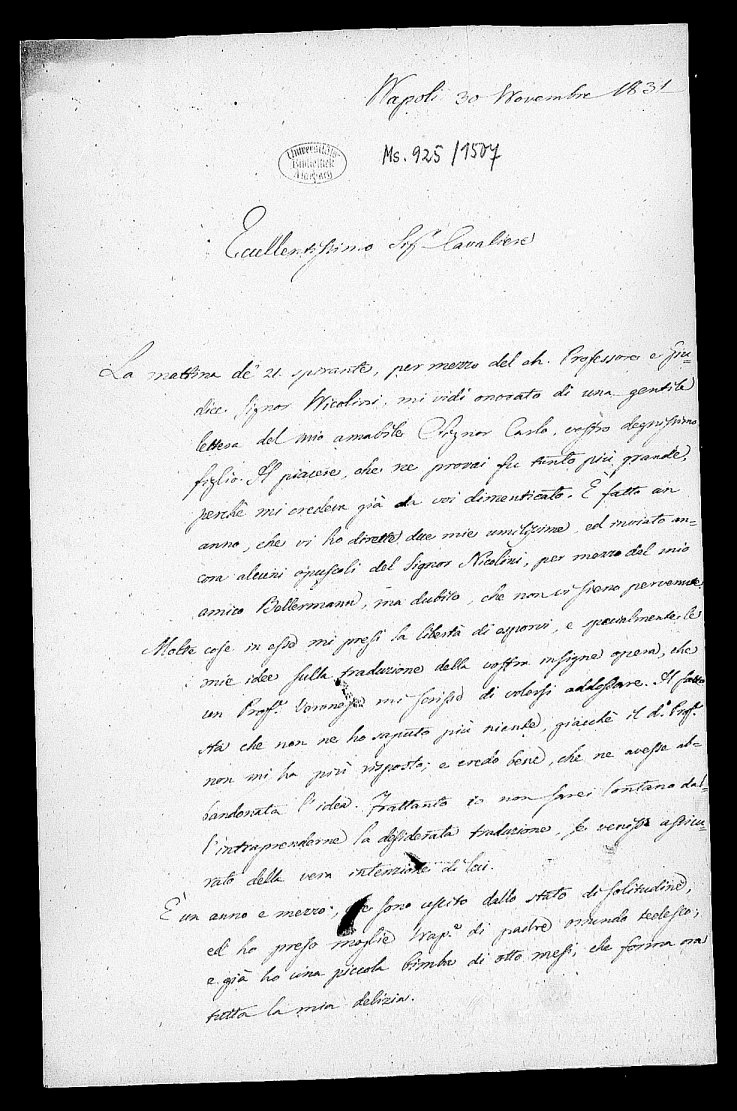 Napoli 30 Novembre 1831
Universitäts-
Bibliothek
Marburg
Ms. 925/1507
Eccellentissimo Sigr. Cavaliere
La mattina de' 21. spirante, per mezzo del ch. Professore e Giu-
dice Signor Nicolini, mi vidi onorato di una gentile
lettera del mio amabile Signor Carlo, vostro degnissimo
figlio. Il piacere, che ne provai fu tanto più grande,
perchè mi credeva già da voi dimenticato. È fatto un
anno, che vi ho dirette due mie umilissime, ed inviato an-
cora alcuni opuscoli del Signor Nicolini, per mezzo del mio
amico Bellermann, ma dubito, che non vi sieno pervenute.
Molte cose in esse mi presi la libertà di esporvi, e specialmente le
mie idee sulla traduzione della vostra insigne opera, che
un Profr. Varanese mi scrisse di volersi addossare. Il fatto
sta che non ne ho saputo più niente, giacchè il do. Profr.
non mi ha più risposto; e credo bene, che ne avesse ab-
bandonata l'idea. Frattanto io non sarei lontano dal-
l'intraprenderne la desiderata traduzione, se venissi assicu-
rato della vera intenzione di lui.
È un anno e mezzo, che sono uscito dallo stato di solitudine,
ed ho preso moglie Napna. di padre oriundo tedesco;
e già ho una piccola bimba di otto mesi, che forma ora
tutta la mia delizia.